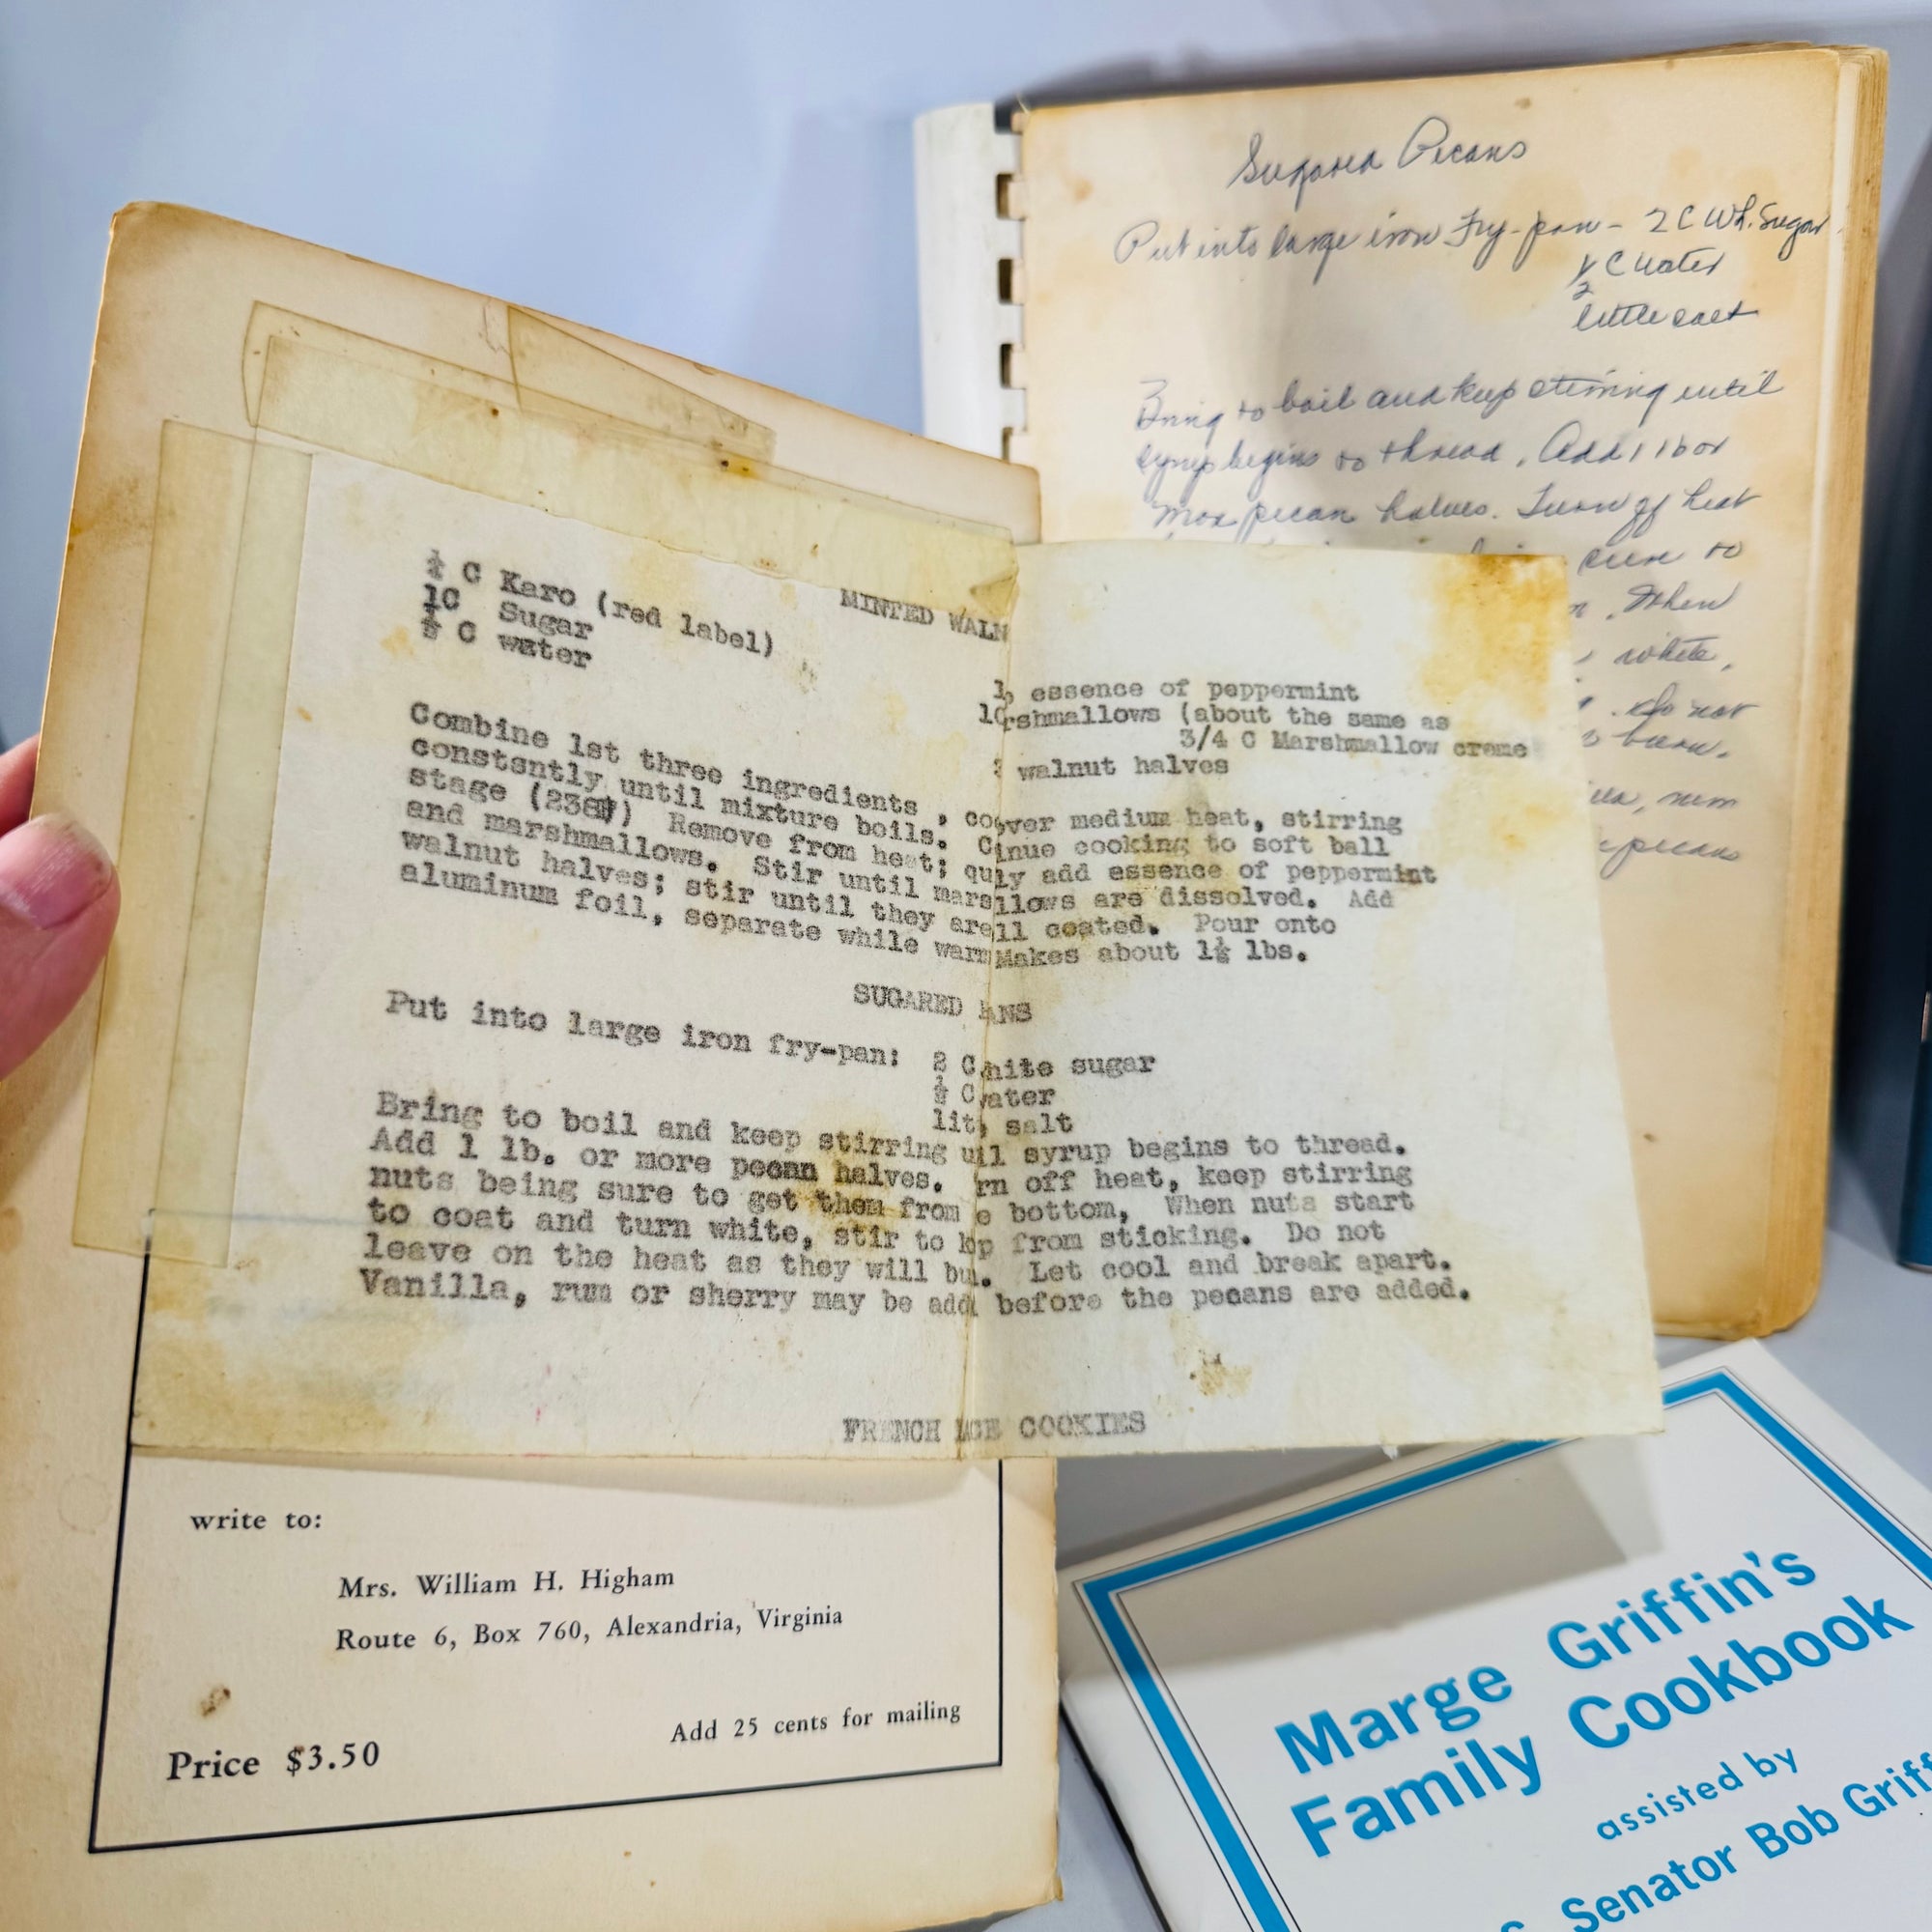 Sugared Pecans
Put into large iron Fry-pan - 2 C Wh. Sugar
1/2 C water
little salt
Bring to boil and keep stirring until
syrup begins to thread. Add 1 lb or
more pecan halves. Turn off heat
sure to
. When
white,
. Do not
burn.
rum
pecans
MINTED WALN
¼ C Karo (red label)
1C Sugar
½ C water
1 essence of peppermint
10 rshmallows (about the same as
3/4 C Marshmallow creme
walnut halves
Combine 1st three ingredients , co ver medium heat, stirring
constantly until mixture boils. C inue cooking to soft ball
stage (238 ) Remove from heat; qu ly add essence of peppermint
and marshmallows. Stir until mars llows are dissolved. Add
walnut halves; stir until they are ll coated. Pour onto
aluminum foil, separate while warm Makes about 1½ lbs.
SUGARED ANS
Put into large iron fry-pan: 2 C hite sugar
½ C ater
lit salt
Bring to boil and keep stirring u il syrup begins to thread.
Add 1 lb. or more pecan halves. rn off heat, keep stirring
nuts being sure to get them from e bottom, When nuts start
to coat and turn white, stir to k p from sticking. Do not
leave on the heat as they will bu . Let cool and break apart.
Vanilla, rum or sherry may be add before the pecans are added.
FRENCH ACE COOKIES
write to:
Mrs. William H. Higham
Route 6, Box 760, Alexandria, Virginia
Add 25 cents for mailing
Price $3.50
Marge Griffin's
Family Cookbook
assisted by
Senator Bob Griff